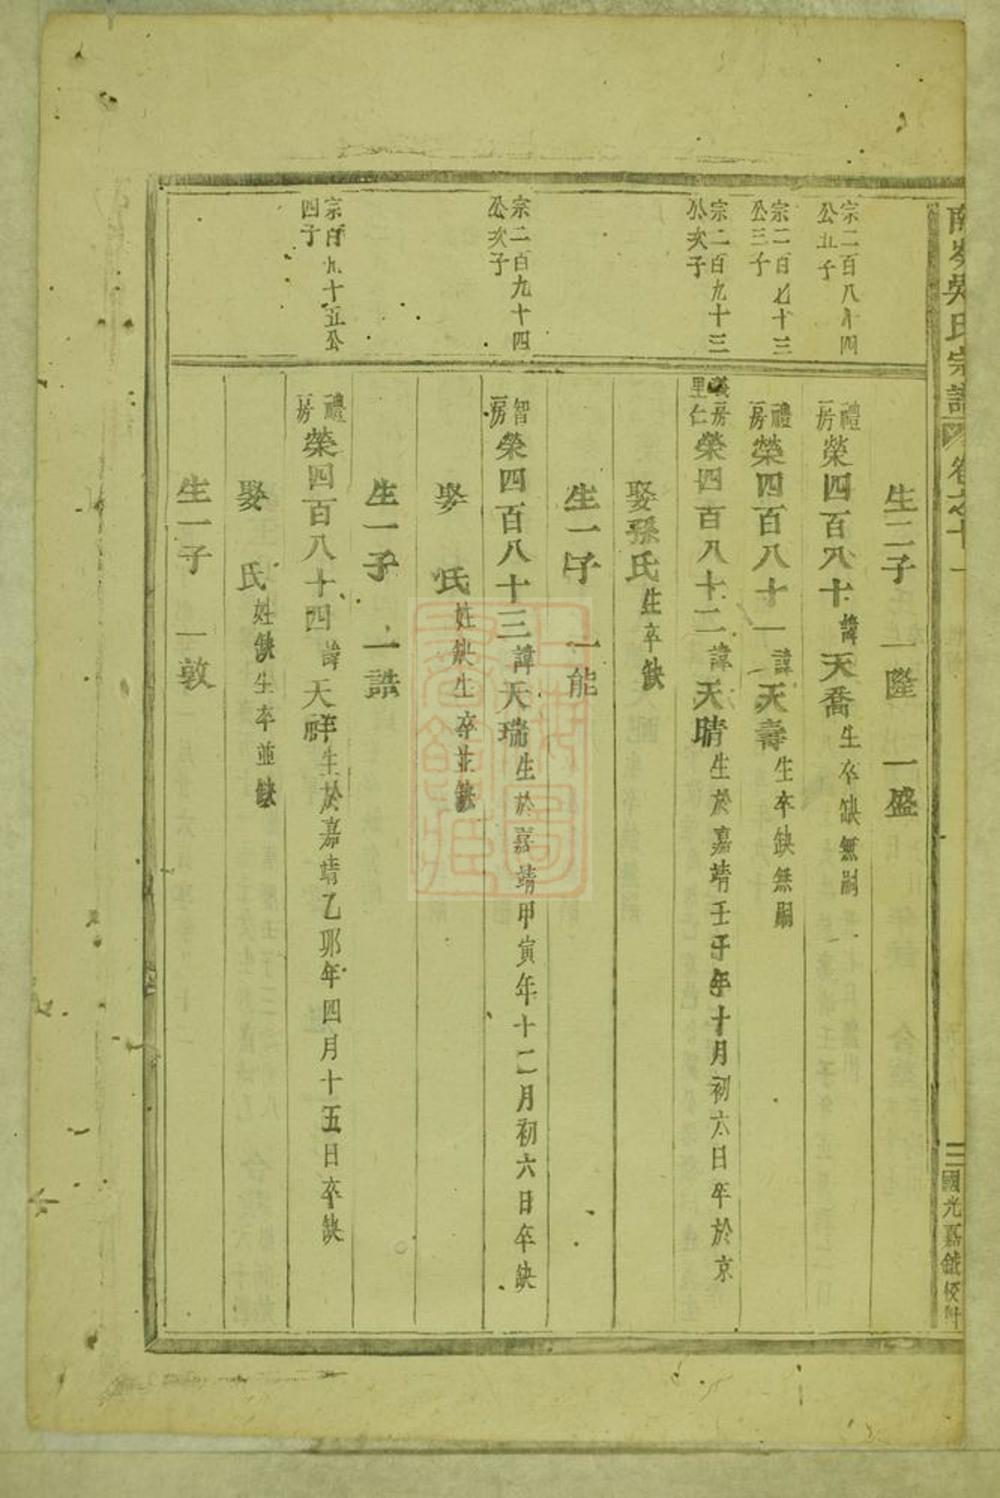 南岑吳氏宗譜 卷之十一
三 國光嘉鉞校刊
生二子 一隆 一盛
宗二百八十四公五子
禮一房 榮四百八十 諱天喬 生卒缺無嗣
宗二百七十三公三子
禮一房 榮四百八十一 諱天壽 生卒缺無嗣
宗二百九十三公次子
義一房里仁 榮四百八十二 諱天晴 生於嘉靖壬子年十月初六日卒於京
娶孫氏 生卒缺
生一子 一能
宗二百九十四公次子
智一房 榮四百八十三 諱天瑞 生於嘉靖甲寅年十二月初六日卒缺
娶 氏 姓缺生卒並缺
生一子 一誥
宗二百九十五公四子
禮一房 榮四百八十四 諱天祥 生於嘉靖乙卯年四月十五日卒缺
娶 氏 姓缺生卒並缺
生一子 一敦
上海圖書館藏